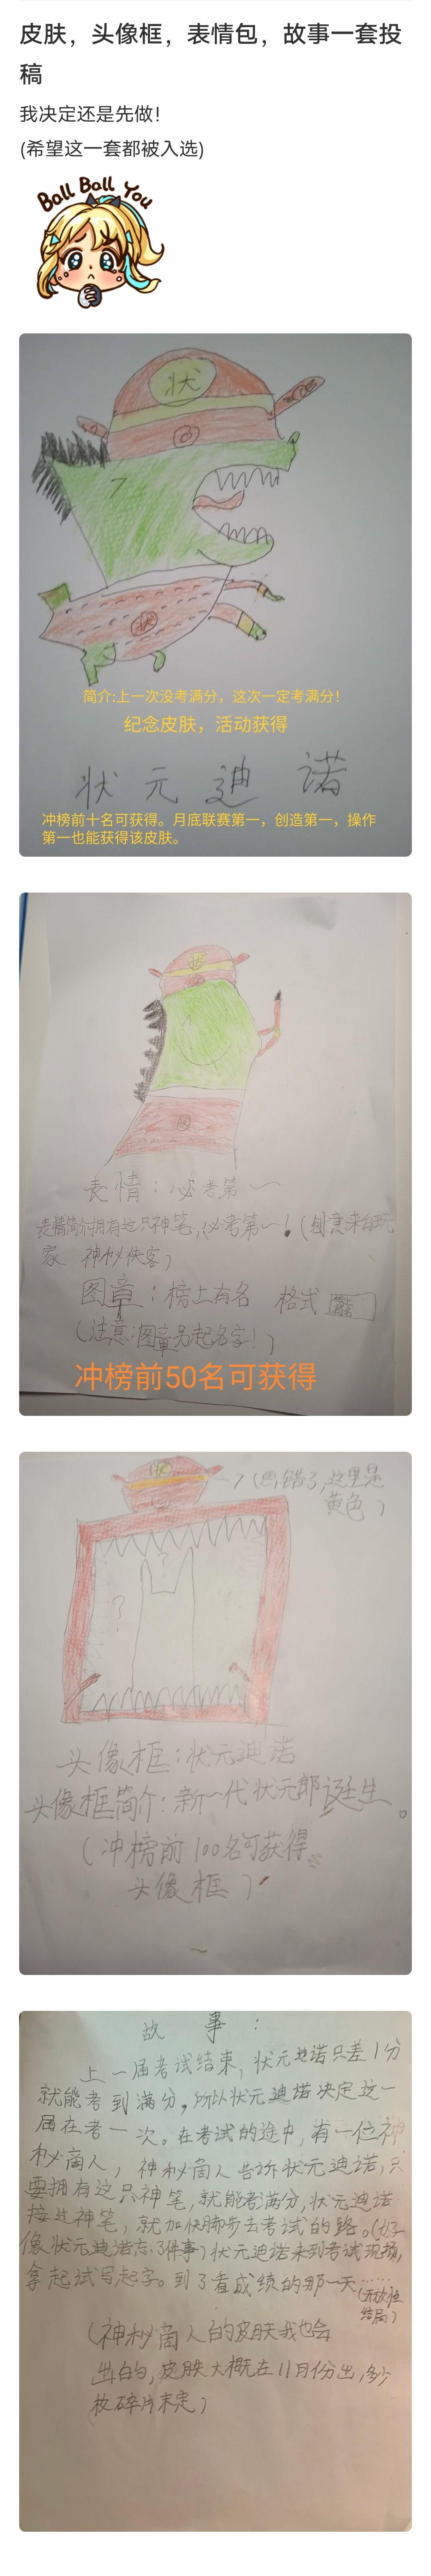 皮肤，头像框，表情包，故事一套投
稿
我决定还是先做！
(希望这一套都被入选)
Ball Ball You
状
状
简介:上一次没考满分，这次一定考满分！
纪念皮肤，活动获得
状元迪诺
冲榜前十名可获得。月底联赛第一，创造第一，操作
第一也能获得该皮肤。
状
表情：必考第一
表情简介拥有这只神笔，必考第一！(创意来自玩
家 神秘侠客)
图章：榜上有名 格式
(注意：图章另起名字！)
冲榜前50名可获得
？(画错了，这里是
黄色)
？
？
头像框：状元迪诺
头像框简介：新一代状元郎诞生。
(冲榜前100名可获得
头像框)
故事：
上一届考试结束，状元迪诺只差1分
就能考到满分，所以状元迪诺决定这一
届在考一次。在考试的途中，有一位神
秘商人，神秘商人告诉状元迪诺，只
要拥有这只神笔，就能考满分，状元迪诺
接过神笔，就加快脚步去考试的路。(好
像状元迪诺忘了件事)状元迪诺来到考试现场，
拿起试写起字。到了看成绩的那一天……
(开放性
结局)
(神秘商人的皮肤我也会
出的，皮肤大概在11月份出，多少
枚碎片未定)